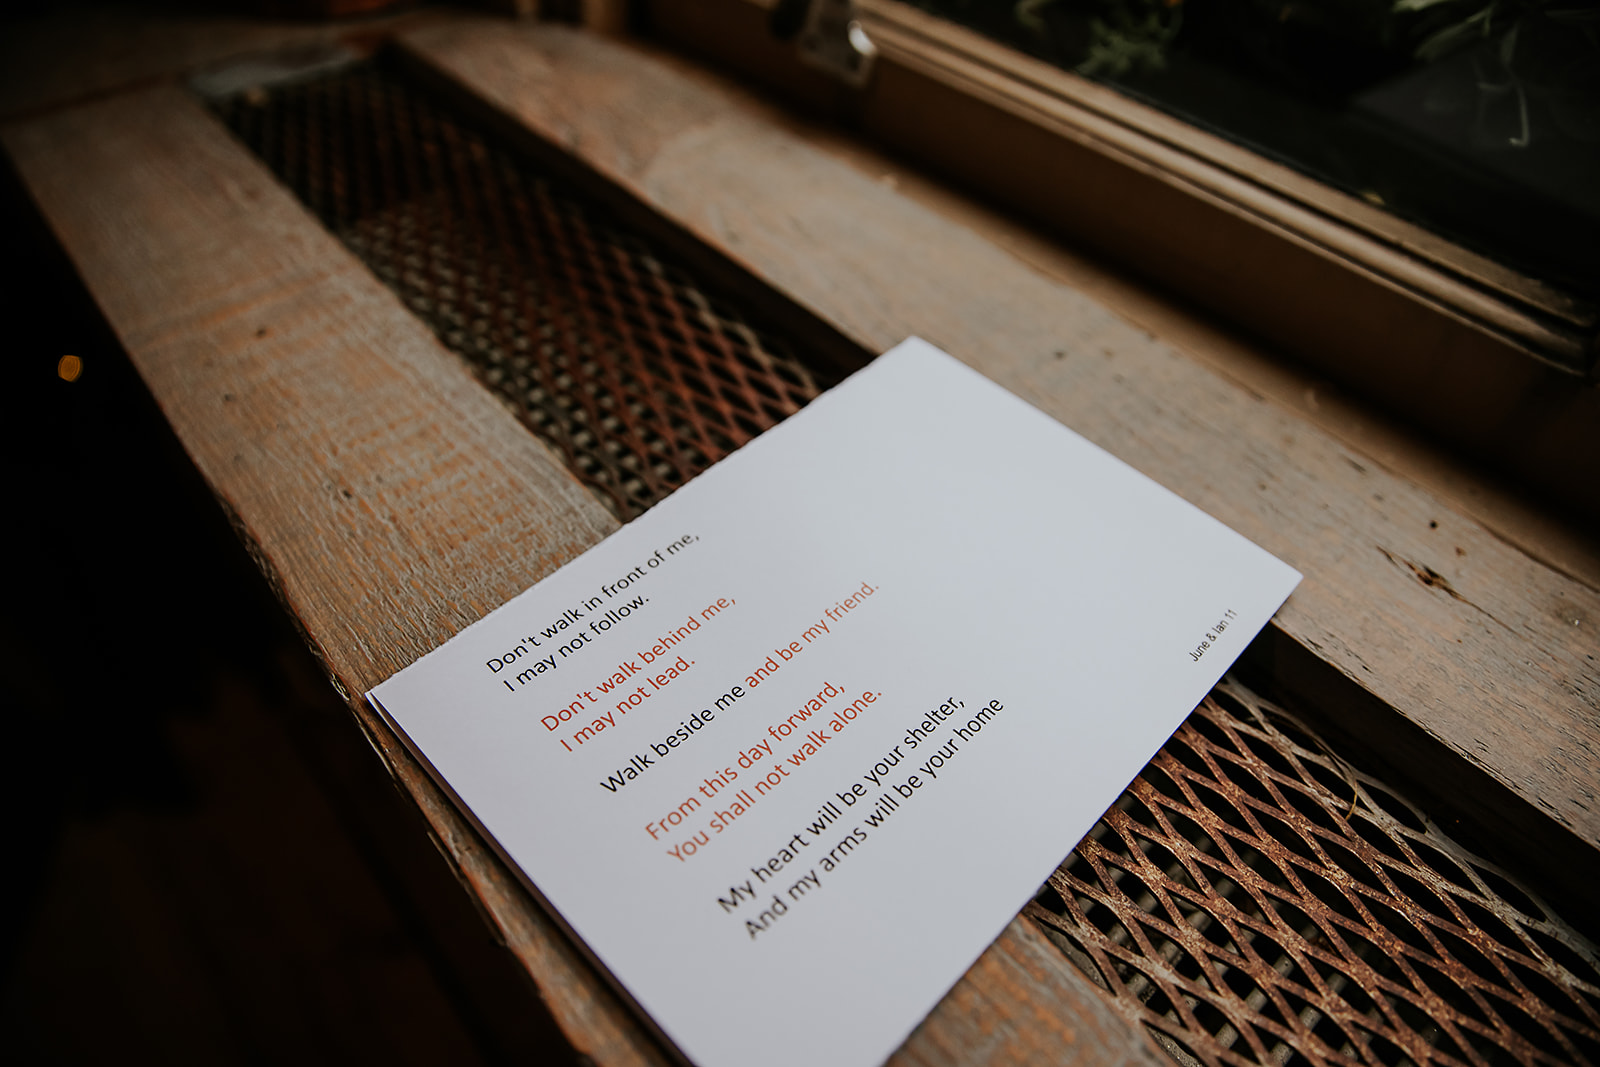 Don't walk in front of me,
I may not follow.
Don't walk behind me,
I may not lead.
Walk beside me and be my friend.
From this day forward,
You shall not walk alone.
My heart will be your shelter,
And my arms will be your home
June & Ian 11